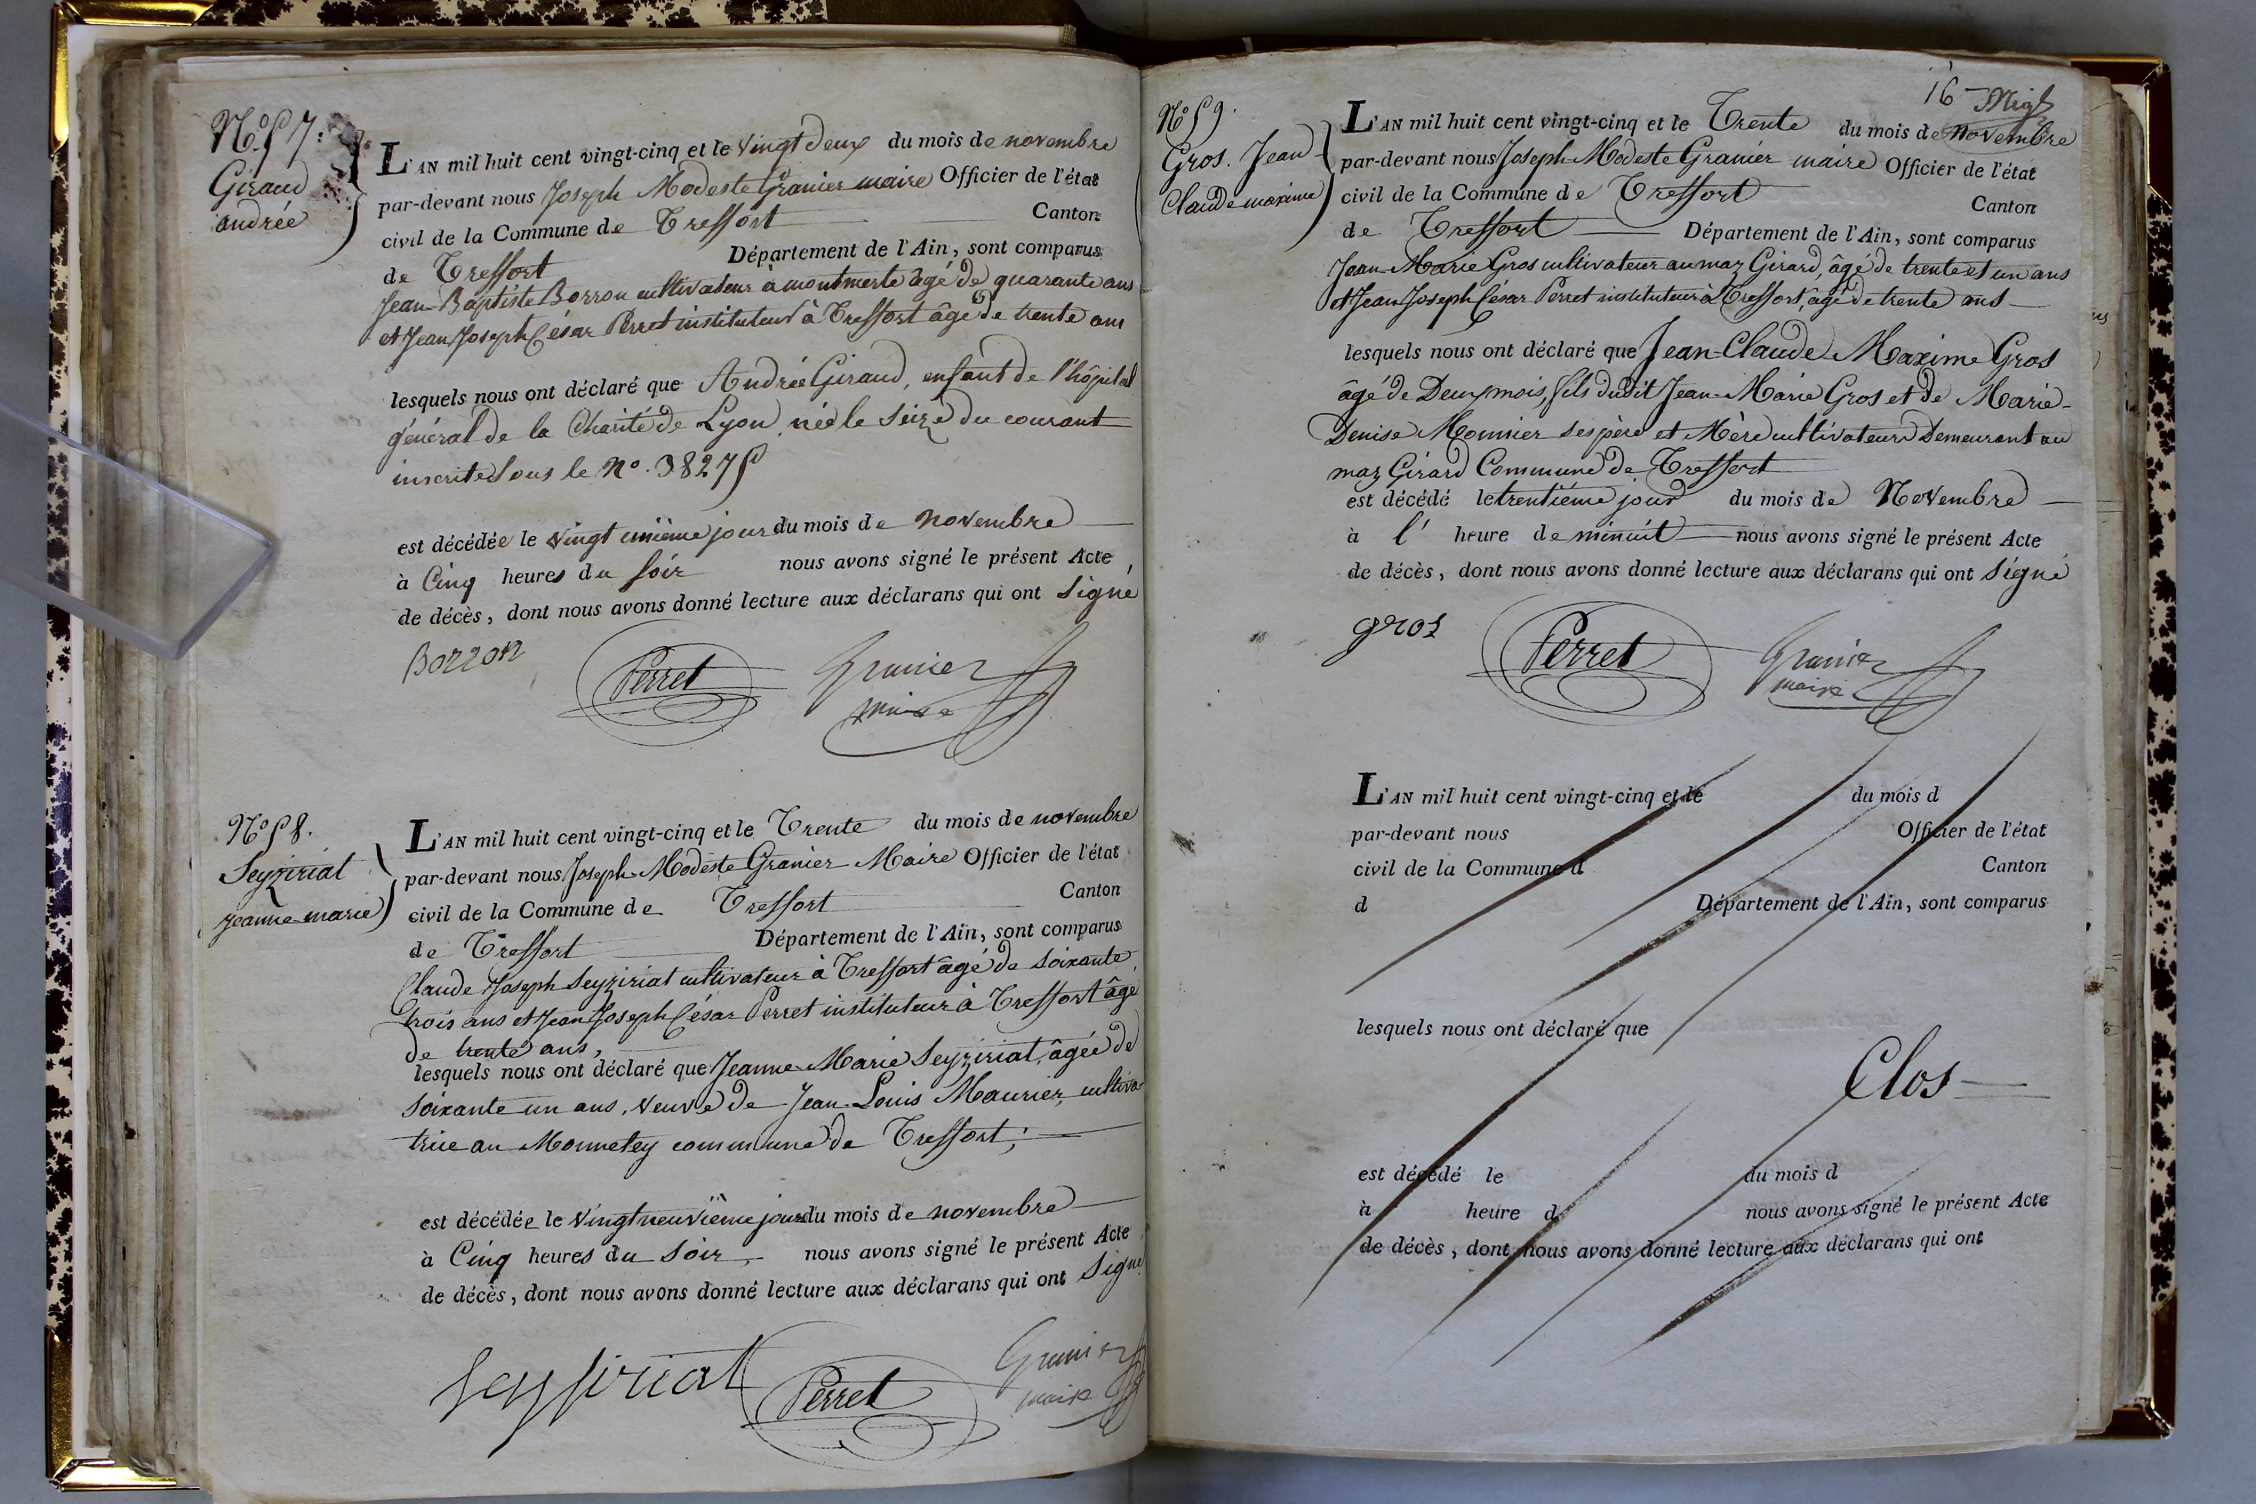 N.º 57.
Giraud
andrée
L'AN mil huit cent vingt-cinq et le vingt deux du mois de novembre
par-devant nous Joseph Modeste Granier maire Officier de l'état
civil de la Commune de Treffort Canton
de Treffort Département de l'Ain, sont comparus
Jean-Baptiste Borron cultivateur à montmerle âgé de quarante ans
et Jean Joseph César Perret instituteur à Treffort âgé de trente ans
lesquels nous ont déclaré que Andrée Giraud, enfant de l'hôpital
général de la Charité de Lyon, née le seize du courant
inscrite sous le Nº. 38275
est décédée le vingt unième jour du mois de novembre
à Cinq heures du soir nous avons signé le présent Acte
de décès, dont nous avons donné lecture aux déclarans qui ont signé
Borron Perret Granier
maire
Nº 58.
Seyziriat
jeanne marie
L'AN mil huit cent vingt-cinq et le Trente du mois de novembre
par-devant nous Joseph Modeste Granier Maire Officier de l'état
civil de la Commune de Treffort Canton
de Treffort Département de l'Ain, sont comparus
Claude Joseph Seyziriat cultivateur à Treffort âgé de soixante
trois ans et Jean Joseph César Perret instituteur à Treffort âgé
de trente ans,
lesquels nous ont déclaré que Jeanne Marie Seyziriat, âgée de
soixante un ans, veuve de Jean Louis Maurier, cultiva-
trice au Monnetey commune de Treffort;
est décédée le vingt neuvième jour du mois de novembre
à Cinq heures du soir, nous avons signé le présent Acte
de décès, dont nous avons donné lecture aux déclarans qui ont signé
Seyssiriat Perret Granier
maire
16
Nº 59.
Gros. Jean
Claude maxime
L'AN mil huit cent vingt-cinq et le Trente du mois de novembre
par-devant nous Joseph Modeste Granier maire Officier de l'état
civil de la Commune de Treffort Canton
de Treffort Département de l'Ain, sont comparus
Jean-Marie Gros cultivateur au maz Girard, âgé de trente et un ans
et Jean Joseph César Perret instituteur à Treffort, âgé de trente ans
lesquels nous ont déclaré que Jean-Claude Maxime Gros
âgé de Deux mois, fils dudit Jean-Marie Gros et de Marie-
Denise Monnier ses père et Mère cultivateurs Demeurant au
maz Girard Commune de Treffort
est décédé le trentième jour du mois de Novembre
à l' heure de minuit nous avons signé le présent Acte
de décès, dont nous avons donné lecture aux déclarans qui ont signé
gros Perret Granier
maire
L'AN mil huit cent vingt-cinq et le du mois d
par-devant nous Officier de l'état
civil de la Commune d Canton
d Département de l'Ain, sont comparus
lesquels nous ont déclaré que
Clos
est décédé le du mois d
à heure d nous avons signé le présent Acte
de décès, dont nous avons donné lecture aux déclarans qui ont